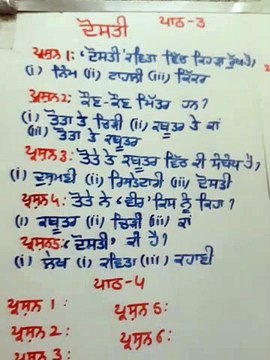 ਦੋਸਤੀ ਪਾਠ-3
ਪ੍ਰਸ਼ਨ 1: 'ਦੋਸਤੀ' ਕਵਿਤਾ ਵਿੱਚ ਕਿਹੜਾ ਰੁੱਖ ਹੈ,
(i) ਨਿੰਮ (ii) ਟਾਹਲੀ (iii) ਕਿੱਕਰ
ਪ੍ਰਸ਼ਨ 2: ਕੌਣ-ਕੌਣ ਮਿੱਤਰ ਹਨ?
(i) ਤੋਤਾ ਤੇ ਚਿੜੀ (ii) ਕਬੂਤਰ ਤੇ ਕਾਂ
(iii) ਤੋਤਾ ਤੇ ਕਬੂਤਰ
ਪ੍ਰਸ਼ਨ 3: ਤੋਤੇ ਤੇ ਕਬੂਤਰ ਵਿੱਚ ਕੀ ਸੰਬੰਧ ਹੈ,
(i) ਦੁਸ਼ਮਣੀ (ii) ਰਿਸ਼ਤੇਦਾਰੀ (iii) ਦੋਸਤੀ
ਪ੍ਰਸ਼ਨ 4: ਤੋਤੇ ਨੇ 'ਵੀਰ' ਕਿਸ ਨੂੰ ਕਿਹਾ?
(i) ਕਬੂਤਰ (ii) ਚਿੜੀ (iii) ਕਾਂ
ਪ੍ਰਸ਼ਨ 5: 'ਦੋਸਤੀ' ਕੀ ਹੈ?
(i) ਲੇਖ (ii) ਕਵਿਤਾ (iii) ਕਹਾਣੀ
ਪਾਠ-4
ਪ੍ਰਸ਼ਨ 1: ਪ੍ਰਸ਼ਨ 5:
ਪ੍ਰਸ਼ਨ 2: ਪ੍ਰਸ਼ਨ 6:
ਪ੍ਰਸ਼ਨ 3: